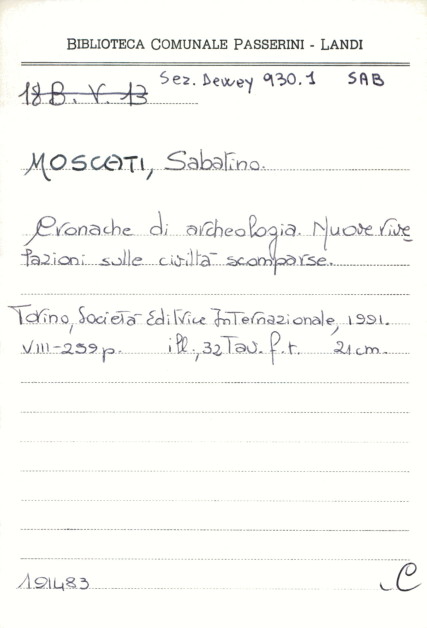 BIBLIOTECA COMUNALE PASSERINI - LANDI
Sez. Dewey 930.1 SAB
18B. V. 13
MOSCATI, Sabatino.
Cronache di archeologia. Nuove rive
lazioni sulle civiltà scomparse.
Torino, Società Editrice Internazionale, 1991.
VIII-259 p. ill., 32 Tav. f.t. 21 cm.
191483 C